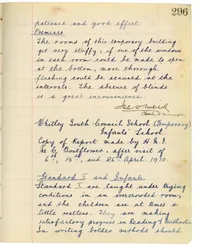 296
patience and good effort
Premises
The rooms of this temporary building
get very stuffy; if one of the windows
in each room could be made to open
at the bottom, more thorough
flushing could be secured at the
intervals. The absence of blinds
is a great inconvenience.
Whitley South Council School (Temporary)
Infants' School.
Copy of Report made by H.M.I.
Mr G. Boutflower, after visit of
6th, 13th, and 26th April 1910.
Standard I and Infants
Standard I are taught under trying
conditions in an overcrowded room,
and the children are at times a
little restless. They are making
satisfactory progress in Reading & Arithmetic
In writing bolder methods should